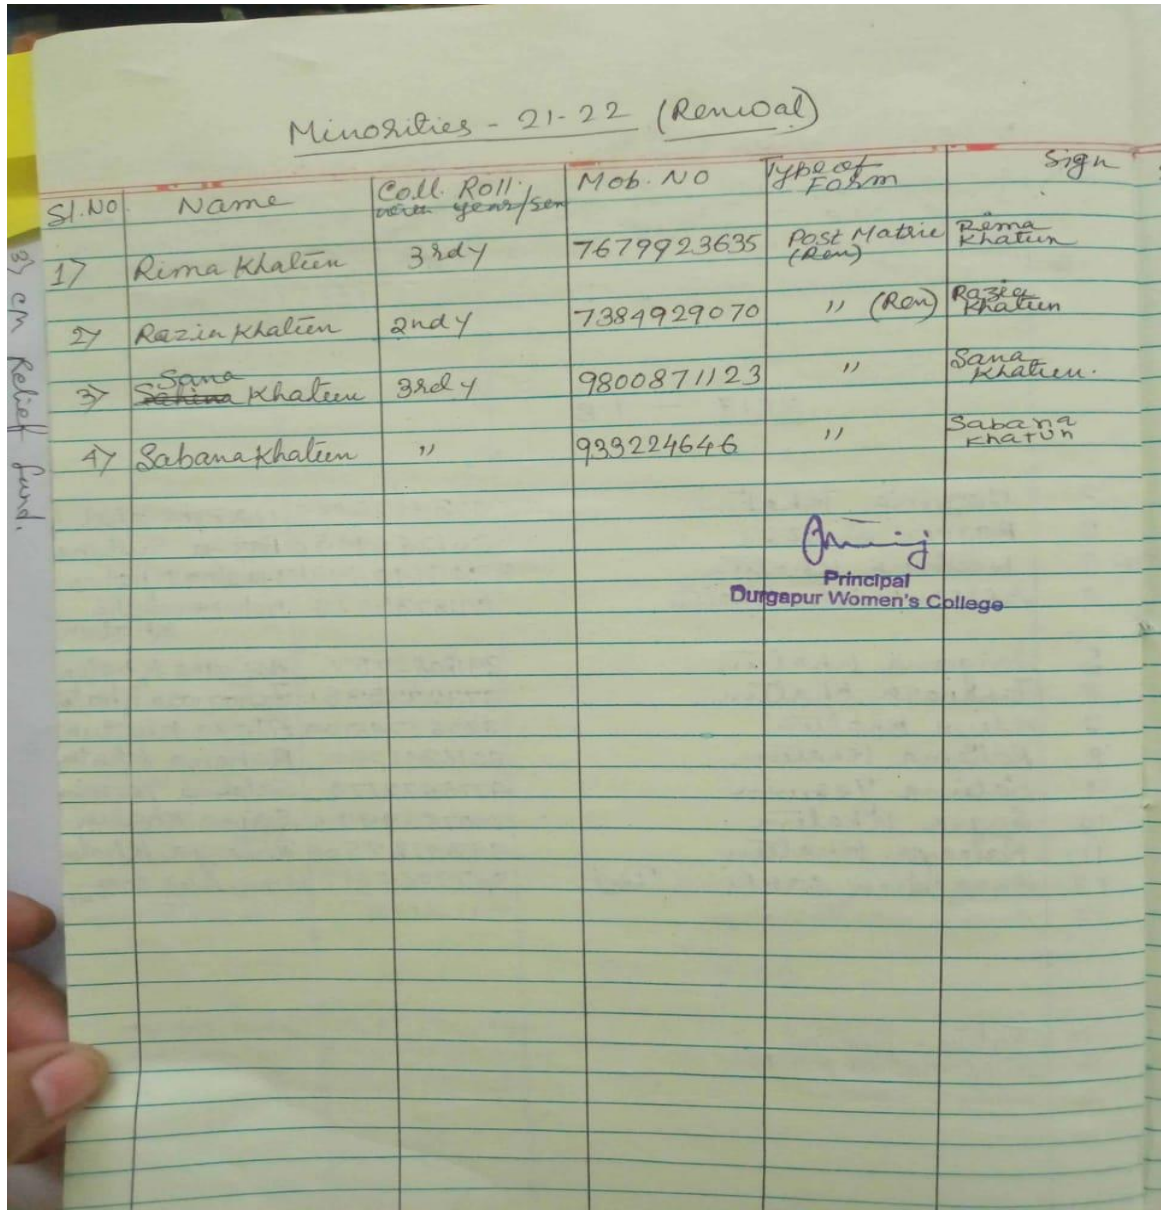 Minorities - 21-22 (Renwal)
Sl.No Name Coll. Roll. year/sem Mob. No Type of Form Sign
1) Rima Khatun 3rdy 7679923635 Post Matric (Ren) Rima Khatun
2) Razia Khatun 2ndy 7384929070 " (Ren) Razia Khatun
3) Sana Khatun 3rdy 9800871123 " Sana Khatun.
4) Sabana Khatun " 933224646 " Sabana Khatun
Principal
Durgapur Women's College
3) CM Relief fund.